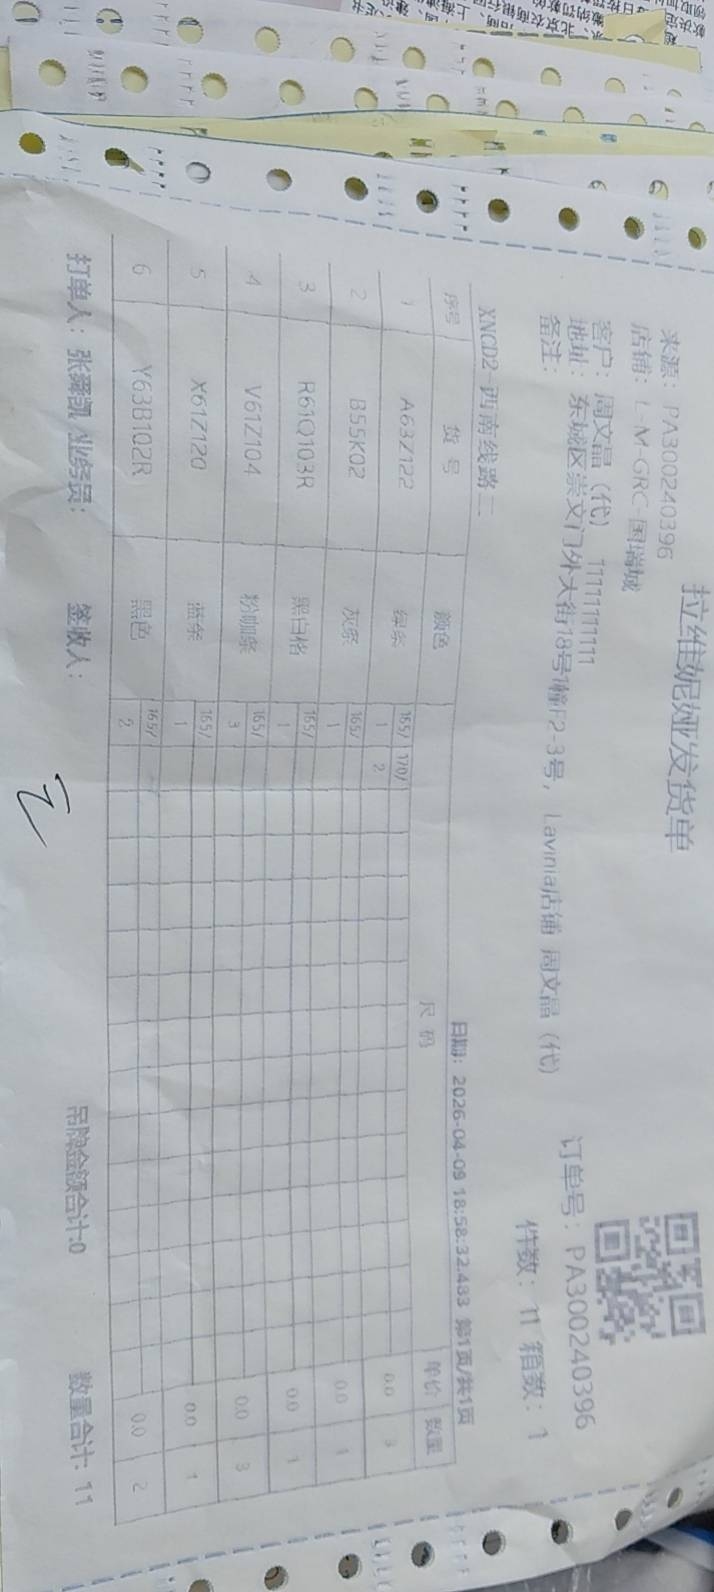 拉维妮娅发货单
来源：PA300240396
店铺：L-M-GRC-国瑞城
客户：周文晶（代） 11111111111
地址：东城区崇文门外大街18号1幢F2-3号，Lavinia店铺 周文晶（代）
备注：
订单号：PA300240396
件数：11 箱数：1
XNCD2-西南线路二 日期：2026-04-09 18:58:32.483 第1页/共1页
序号 货号 颜色 尺码 单价 数量
1 A63Z122 绿条 165/ 170/ 0.0 3
1 2
2 B55K02 灰条 165/ 0.0 1
1
3 R61Q103R 黑白格 165/ 0.0 1
1
4 V61Z104 粉咖条 165/ 0.0 3
3
5 X61Z120 蓝条 165/ 0.0 1
1
6 Y63B102R 黑色 165/ 0.0 2
2
打单人：张舞凯 业务员： 签收人： 吊牌金额合计:0 数量合计：11